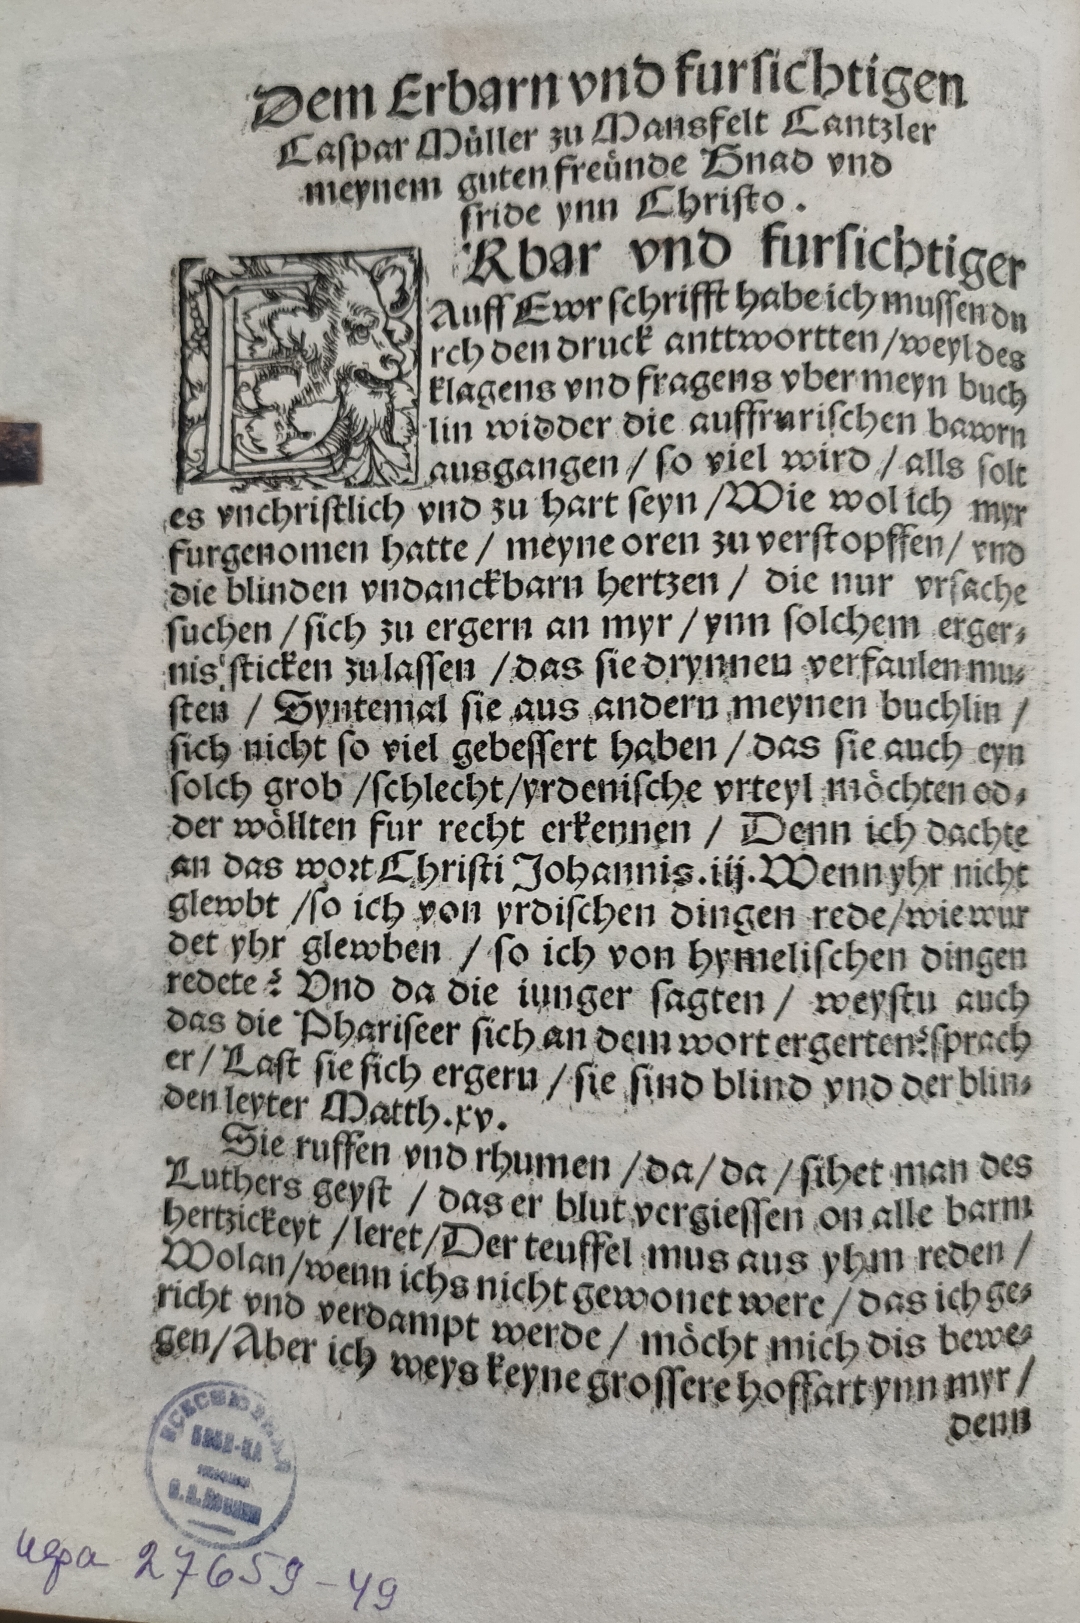 Dem Erbarn vnd fursichtigen
Caspar Müller zu Mansfelt Cantzler
meynem guten freünde Gnad vnd
fride ynn Christo.
ERbar vnd fursichtiger
Auff Ewr schrifft habe ich mussen du
rch den druck anttwortten / weyl des
klagens vnd fragens vber meyn buch
lin widder die auffrurischen bawrn
ausgangen / so viel wird / alls solt
es vnchristlich vnd zu hart seyn / Wie wol ich myr
furgenomen hatte / meyne oren zu verstopffen / vnd
die blinden vndanckbarn hertzen / die nur vrsache
suchen / sich zu ergern an myr / ynn solchem erger⸗
nis sticken zu lassen / das sie drynnen verfaulen mu⸗
sten / Syntemal sie aus andern meynen buchlin /
sich nicht so viel gebessert haben / das sie auch eyn
solch grob / schlecht / yrdenische vrteyl möchten od⸗
der wöllten fur recht erkennen / Denn ich dachte
an das wort Christi Johannis.iij. Wenn yhr nicht
glewbt / so ich von yrdischen dingen rede / wie wur
det yhr glewben / so ich von hymelischen dingen
redete? Vnd da die iunger sagten / weystu auch
das die Phariseer sich an dem wort ergerten? sprach
er / Last sie sich ergern / sie sind blind vnd der blin⸗
den leyter Matth.xv.
Sie ruffen vnd rhumen / da / da / sihet man des
Luthers geyst / das er blut vergiessen on alle barm
hertzickeyt / leret / Der teuffel mus aus yhm reden /
Wolan / wenn ichs nicht gewonet were / das ich ge⸗
richt vnd verdampt werde / möcht mich dis bewe⸗
gen / Aber ich weys keyne grossere hoffart ynn myr /
denn
ВСЕСОЮЗНАЯ
БИБЛ-КА
В. И. ЛЕНИНА
27659-49